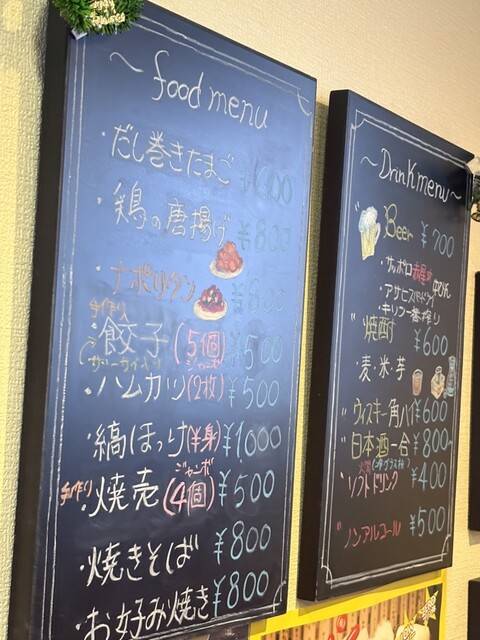 ~food menu
・だし巻きたまご ¥600
・鶏の唐揚げ ¥800
・ナポリタン ¥800
手作り
・餃子(5個) ¥500
ジャンボ
・ハムカツ(2枚) ¥500
・縞ほっけ(半身) ¥1,000
ジャンボ
手作り・焼売(4個) ¥500
・焼きそば ¥800
・お好み焼き ¥800
~Drink menu~
Beer ¥700
・サッポロ赤星
・アサヒスーパードライ
・キリン一番搾り
焼酎 ¥600
麦・米・芋
ウィスキー角ハイ ¥600
日本酒一合 ¥800
ソフトドリンク ¥400
ノンアルコール ¥500